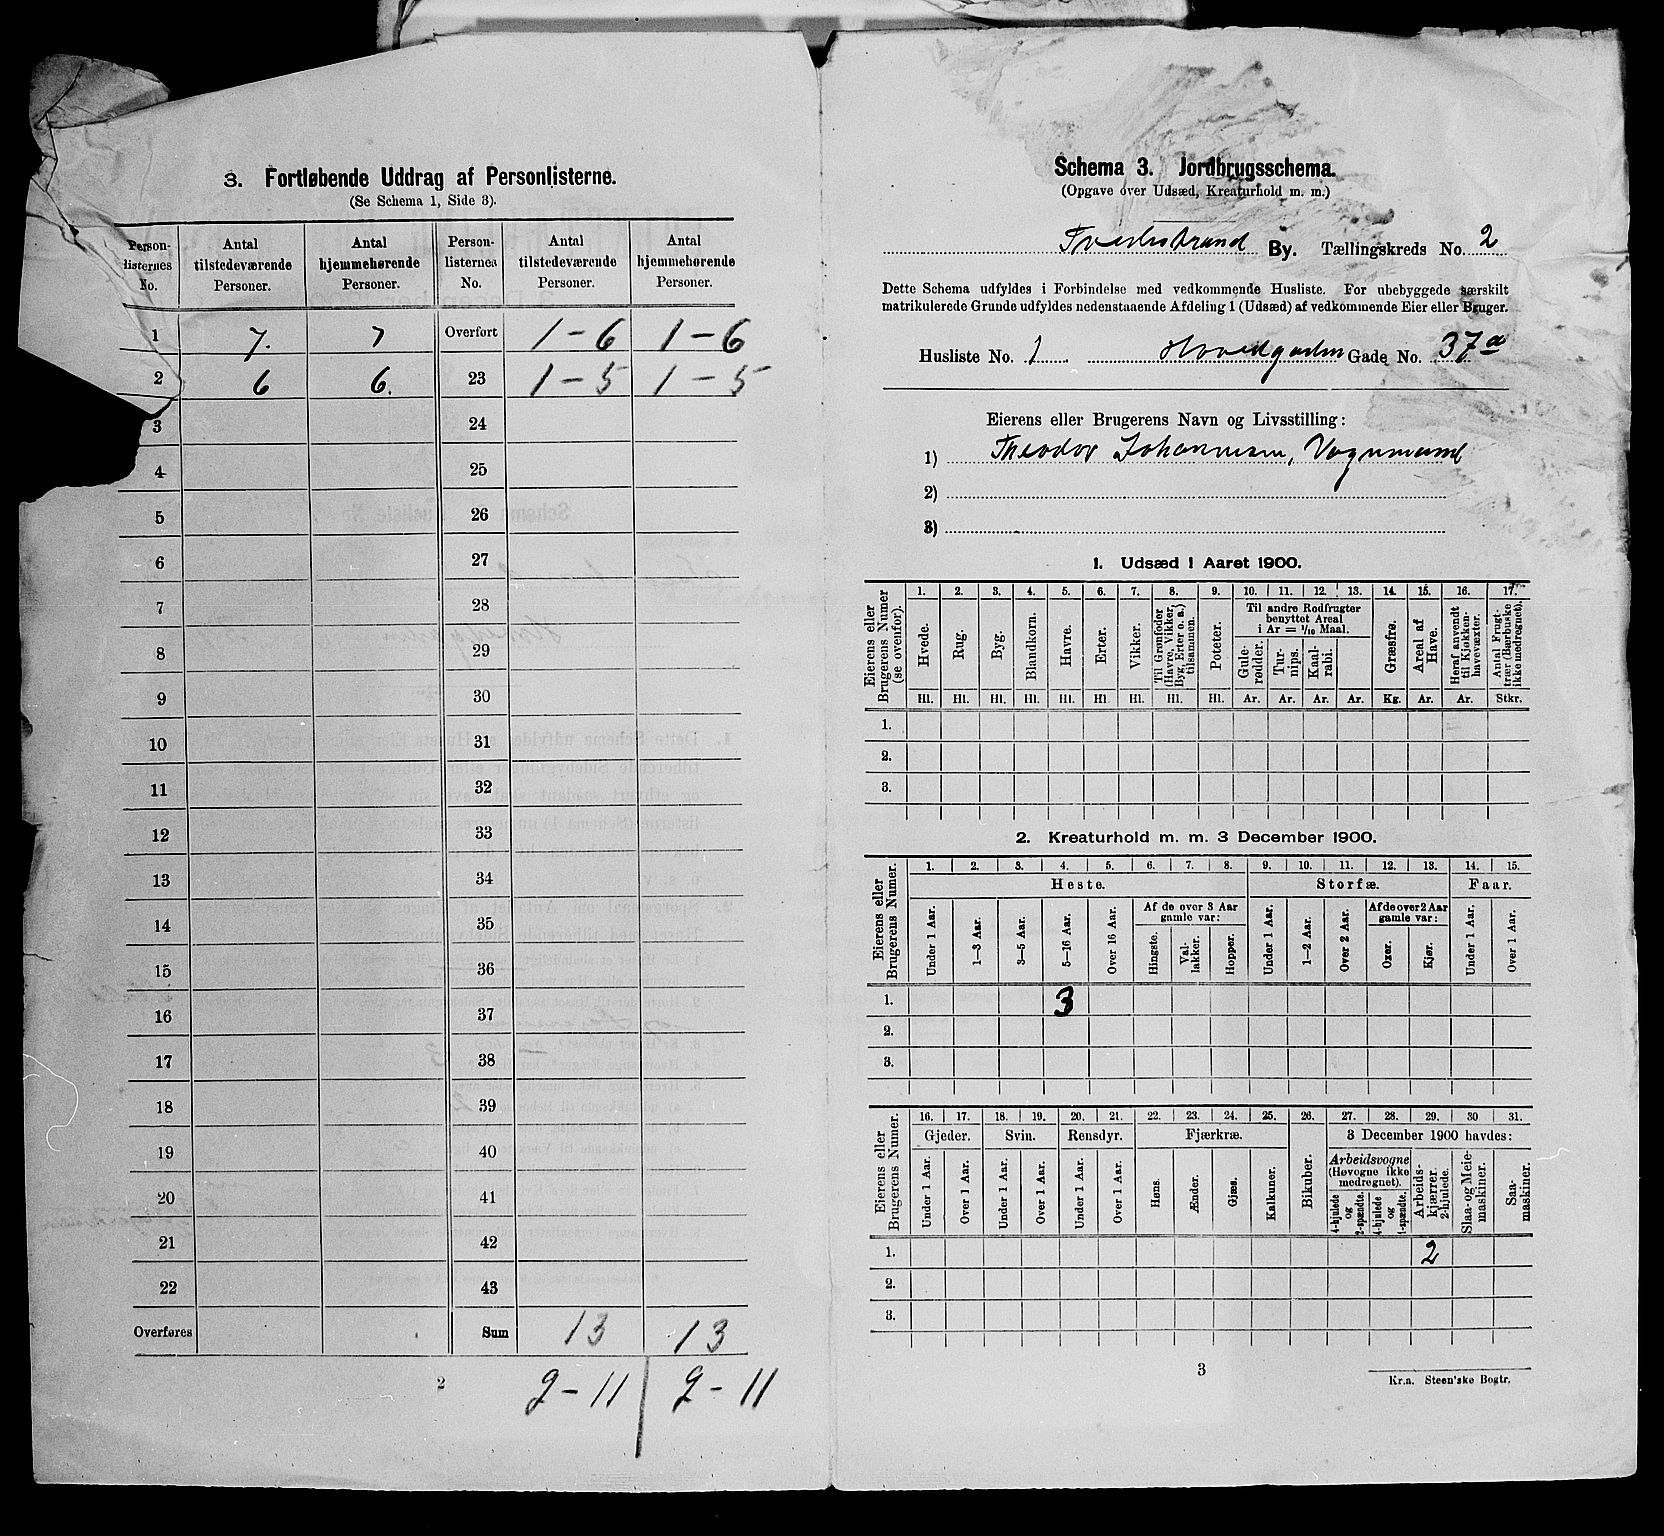 3. Fortløbende Uddrag af Personlisterne.
(Se Schema 1, Side 3).
Person-listernes No. | Antal tilstedeværende Personer. | Antal hjemmehørende Personer. | Person-listernes No. | Antal tilstedeværende Personer. | Antal hjemmehørende Personer.
1 | 7. | 7 | Overført | 1-6 | 1-6
2 | 6 | 6. | 23 | 1-5 | 1-5
3 | 24
4 | 25
5 | 26
6 | 27
7 | 28
8 | 29
9 | 30
10 | 31
11 | 32
12 | 33
13 | 34
14 | 35
15 | 36
16 | 37
17 | 38
18 | 39
19 | 40
20 | 41
21 | 42
22 | 43
Overføres | Sum | 13 | 13
2
2-11 | 2-11
Schema 3. Jordbrugsschema.
(Opgave over Udsæd, Kreaturhold m. m.)
Tvedestrand By. Tællingskreds No. 2
Dette Schema udfyldes i Forbindelse med vedkommende Husliste. For ubebyggede særskilt
matrikulerede Grunde udfyldes nedenstaaende Afdeling 1 (Udsæd) af vedkommende Eier eller Bruger.
Husliste No. 1 Hovedgaden Gade No. 37a
Eierens eller Brugerens Navn og Livsstilling:
1) Theodor Johannesen, Vognmand
2)
3)
1. Udsæd i Aaret 1900.
Eierens eller Brugerens Numer (se ovenfor).
1. | 2. | 3. | 4. | 5. | 6. | 7. | 8. | 9. | 10. | 11. | 12. | 13. | 14. | 15. | 16. | 17.
Til andre Rodfrugter benyttet Areal i Ar = 1/10 Maal.
Hvede. | Rug. | Byg. | Blandkorn. | Havre. | Erter. | Vikker. | Til Grønfoder (Havre, Vikker, Byg, Erter o. a.) tilsammen. | Poteter. | Gule-rødder. | Tur-nips. | Kaal-rabi. | Græsfrø. | Areal af Have. | Heraf anvendt til Kjøkken-havevæxter. | Antal Frugt-trær (Bærbuske ikke medregnet).
Hl. | Hl. | Hl. | Hl. | Hl. | Hl. | Hl. | Hl. | Hl. | Ar. | Ar. | Ar. | Ar. | Kg. | Ar. | Ar. | Stkr.
1.
2.
3.
2. Kreaturhold m. m. 3 December 1900.
Eierens eller Brugerens Numer.
1. | 2. | 3. | 4. | 5. | 6. | 7. | 8. | 9. | 10. | 11. | 12. | 13. | 14. | 15.
Heste. | Storfæ. | Faar.
Af de over 3 Aar gamle var: | Af de over 2 Aar gamle var:
Under 1 Aar. | 1—3 Aar. | 3—5 Aar. | 5—16 Aar. | Over 16 Aar. | Hingste. | Val-lakker. | Hopper. | Under 1 Aar. | 1—2 Aar. | Over 2 Aar. | Oxer. | Kjør. | Under 1 Aar. | Over 1 Aar.
1. | 3
2.
3.
Eierens eller Brugerens Numer.
16. | 17. | 18. | 19. | 20. | 21. | 22. | 23. | 24. | 25. | 26. | 27. | 28. | 29. | 30 | 31.
Gjeder. | Svin. | Rensdyr. | Fjærkræ. | 3 December 1900 havdes:
Arbeidsvogne (Høvogne ikke medregnet).
Under 1 Aar. | Over 1 Aar. | Under 1 Aar. | Over 1 Aar. | Under 1 Aar. | Over 1 Aar. | Høns. | Ænder. | Gjæs. | Kalkuner. | Bikuber. | 4-hjulede og 2-spændte. | 4-hjulede og 1-spændte. | Arbeids-kjærrer 2-hjulede. | Slaa- og Meie-maskiner. | Saa-maskiner.
1. | 2
2.
3.
3
Kr.a. Steen'ske Bogtr.